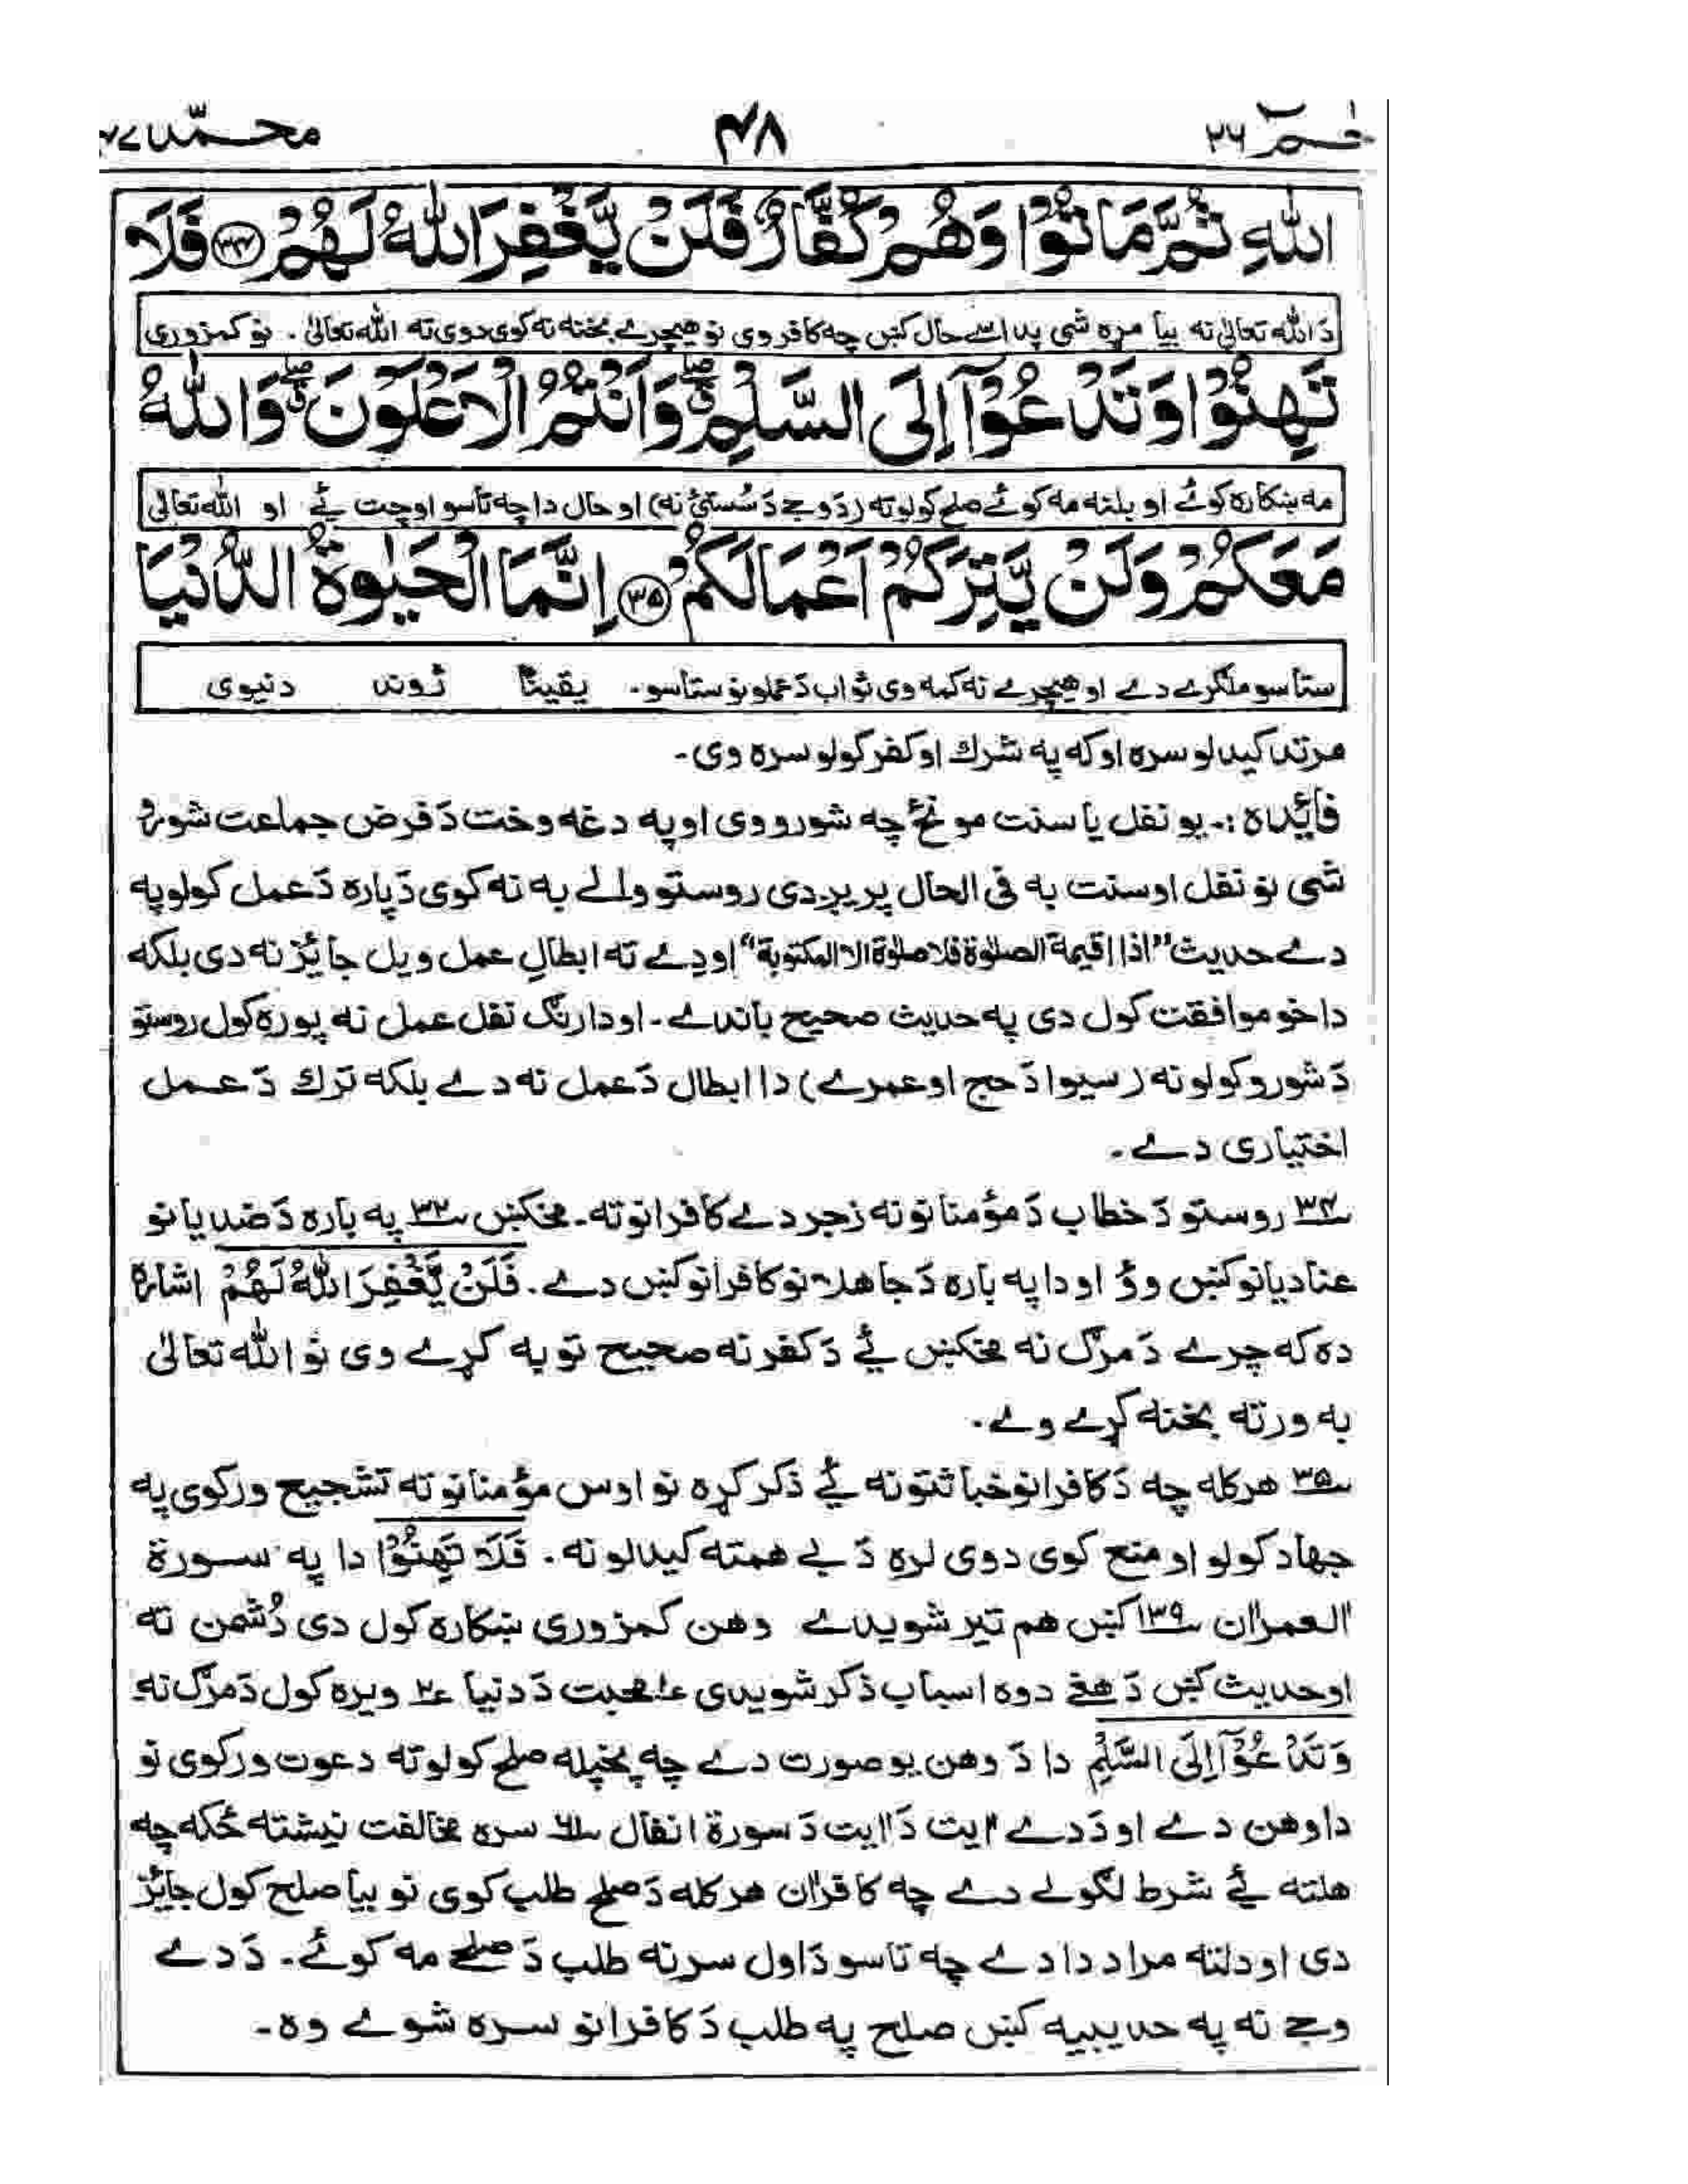 حٰم ۲۶ ۴۸ محمّد ۴۷
اللّٰهِ ثُمَّ مَاتُوْا وَهُمْ كُفَّارٌ فَلَنْ يَّغْفِرَ اللّٰهُ لَهُمْ ۳۴ فَلَا
دَ الله تعالیٰ نه بیا مړه شی په داسے حال کښ چه کافر وی نو هیچرے بخښنه نه کوی دوی ته الله تعالیٰ . نو کمزوری
تَهِنُوْا وَتَدْعُوْٓا اِلَى السَّلْمِ ۖۗ وَاَنْتُمُ الْاَعْلَوْنَ ۖۗ وَاللّٰهُ
مه ښکاره کوئے او بلنه مه کوئے صلح کولو ته (دَ وجے دَ سُستئ نه) او حال دا چه تاسو اوچت یٔے او الله تعالیٰ
مَعَكُمْ وَلَنْ يَّتِرَكُمْ اَعْمَالَكُمْ ۳۵ اِنَّمَا الْحَيٰوةُ الدُّنْيَا
ستاسو ملګرے دے او هیچرے نه کمه وی ثواب دَ عملونو ستاسو. یقینًا ژوند دنیوی
مرتد کیدلو سره او که په شرك او کفر کولو سره وی.
فائِده :. یو نفل یا سنت مونځ چه شورو وی او په دغه وخت دَ فرض جماعت شورو
شی نو نفل او سنت به فی الحال پریږدی روستو والے به نه کوی دَپاره دَ عمل کولو په
دے حدیث "اذا اقيمة الصلوٰة فلا صلوٰة الا المكتوبة" او دے ته ابطالِ عمل ویل جائِز نه دی بلکه
دا خو موافقت کول دی په حدیث صحیح باندے. او دا رنګ نفل عمل نه پوره کول روستو
دَ شورو کولو نه (سیوا دَ حج او عمرے) دا ابطال دَ عمل نه دے بلکه ترك دَ عمل
اختیاری دے .
۳۴ روستو دَ خطاب دَ مؤمنانو نه زجر دے کافرانو ته. مخکښ ۳۲ په باره دَ ضدیانو
عنادیانو کښ وؤ او دا په باره دَ جاهلانو کافرانو کښ دے . فَلَنْ يَّغْفِرَ اللّٰهُ لَهُمْ اشاره
ده که چرے دَ مرګ نه مخکښ یٔے دَ کفر نه صحیح توبه کړے وی نو الله تعالیٰ
به ورته بخښنه کړے وے .
۳۵ هر کله چه دَ کافرانو خباثتونه یٔے ذکر کړه نو اوس مؤمنانو ته تشجیح ورکوی په
جهاد کولو او منع کوی دوی لره دَ بے همته کیدلو نه . فَلَا تَهِنُوْا دا په سورة
اٰلعمران ۱۳۹ کښ هم تیر شویدے وهن کمزوری ښکاره کول دی دُشمن ته
او حدیث کښ دَ هغے دوه اسباب ذکر شویدی ۱ محبت دَ دنیا ۲ ویره کول دَ مرګ نه
وَتَدْعُوْٓا اِلَى السَّلْمِ دا دَ وهن یو صورت دے چه پخپله صلح کولو ته دعوت ورکوی نو
دا وهن دے او دَ دے اٰیت دَ اٰیت دَ سورة انفال ۶۱ سره مخالفت نیشته ځکه چه
هلته یٔے شرط لګولے دے چه کافران هر کله دَ صلح طلب کوی نو بیا صلح کول جائِز
دی او دلته مراد دا دے چه تاسو دَ اول سر نه طلب دَ صلحے مه کوئے. دَ دے
وجے نه په حدیبیه کښ صلح په طلب دَ کافرانو سره شوے وه.